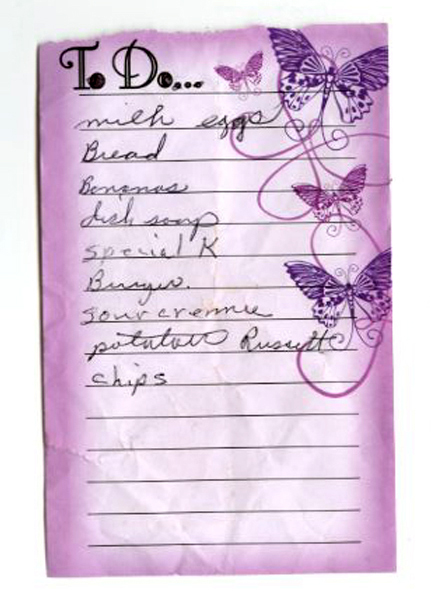 To Do...
milk eggs
Bread
Bananas
dish soap
special K
Burger.
sour cremme
potatoes Russett
chips